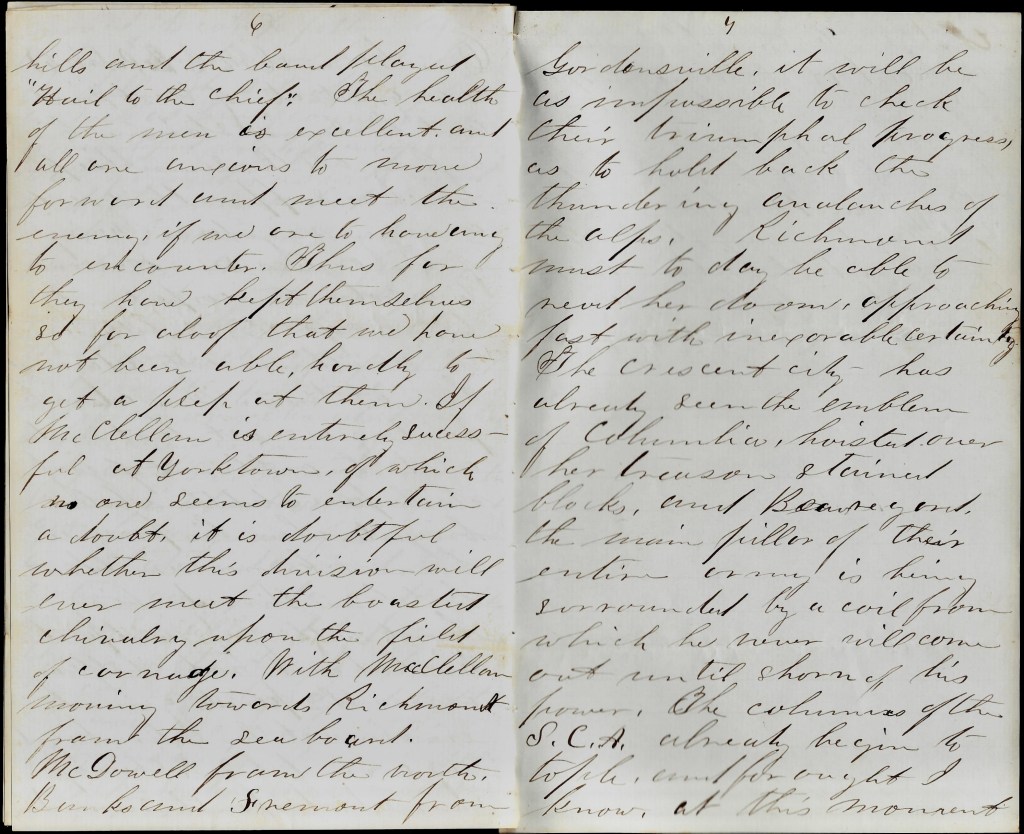 6
hills and the band played
"Hail to the Chief". The health
of the men is excellent. and
all are anxious to move
forward and meet the
enemy, if we are to have any
to encounter. Thus far
they have kept themselves
so far aloof that we have
not been able, hardly to
get a peep at them. If
McClellan is entirely sucess-
ful at Yorktown, of which
no one seems to entertain
a doubt, it is doubtful
whether this division will
ever meet the boasted
chivalry upon the field
of carnage. With McClellan
moving towards Richmond
from the sea board.
McDowell from the north.
Banks and Fremont from
7
Gordonsville, it will be
as impossible to check
their triumphal progress,
as to hold back the
thundering avalanches of
the alps. Richmond
must to day be able to
read her doom, approaching
fast with inexorable certainty
The Crescent city has
already seen the emblem
of Columbia, hoisted over
her treason stained
blocks, and Beauregard.
the main pillar of their
entire army is being
sorrounded by a coil from
which he never will come
out until shorn of his
power. The columns of the
S. C. A. already begin to
tople, and for ought I
know, at this moment